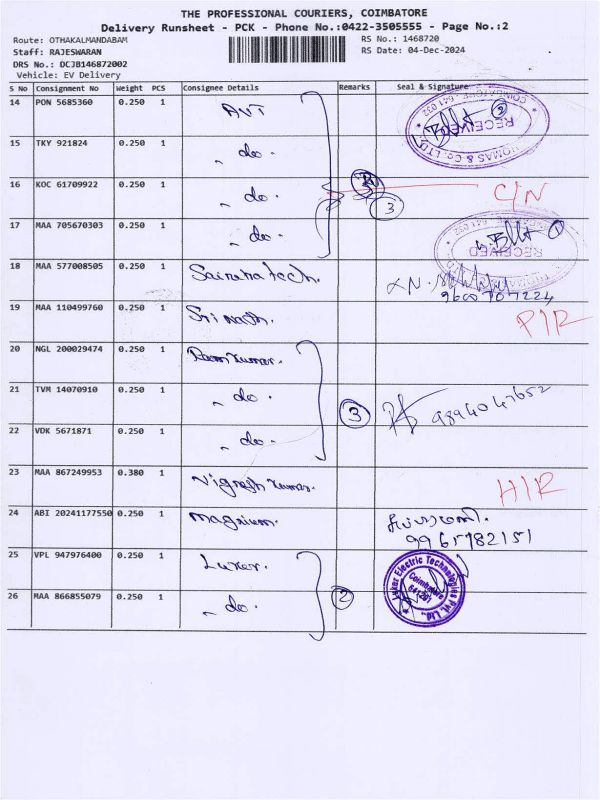 THE PROFESSIONAL COURIERS, COIMBATORE
Delivery Runsheet - PCK - Phone No.:0422-3505555 - Page No.:2
Route: OTHAKALMANDABAM RS No.: 1468720
Staff: RAJESWARAN RS Date: 04-Dec-2024
DRS No.: DCJB146872002
Vehicle: EV Delivery
S No Consignment No Weight PCS Consignee Details Remarks Seal & Signature
14 PON 5685360 0.250 1 AVT
RECEIVED
15 TKY 921824 0.250 1 - do -
16 KOC 61709922 0.250 1 - do - 3 C/N
17 MAA 705670303 0.250 1 - do -
RECEIVED
18 MAA 577008505 0.250 1 Sairanatech.
9600707224
19 MAA 110499760 0.250 1 Sri nath. PIR
20 NGL 200029474 0.250 1 Ramkumar.
21 TVM 14070910 0.250 1 - do - 3 9894047652
22 VDK 5671871 0.250 1 - do -
23 MAA 867249953 0.380 1 Vignesh kumar. HIR
24 ABI 20241177550 0.250 1 Magnum.
9965782151
25 VPL 947976400 0.250 1 Luker.
Luker Electric Technologies Pvt. Ltd.
Coimbatore
641201
26 MAA 866855079 0.250 1 - do - 2